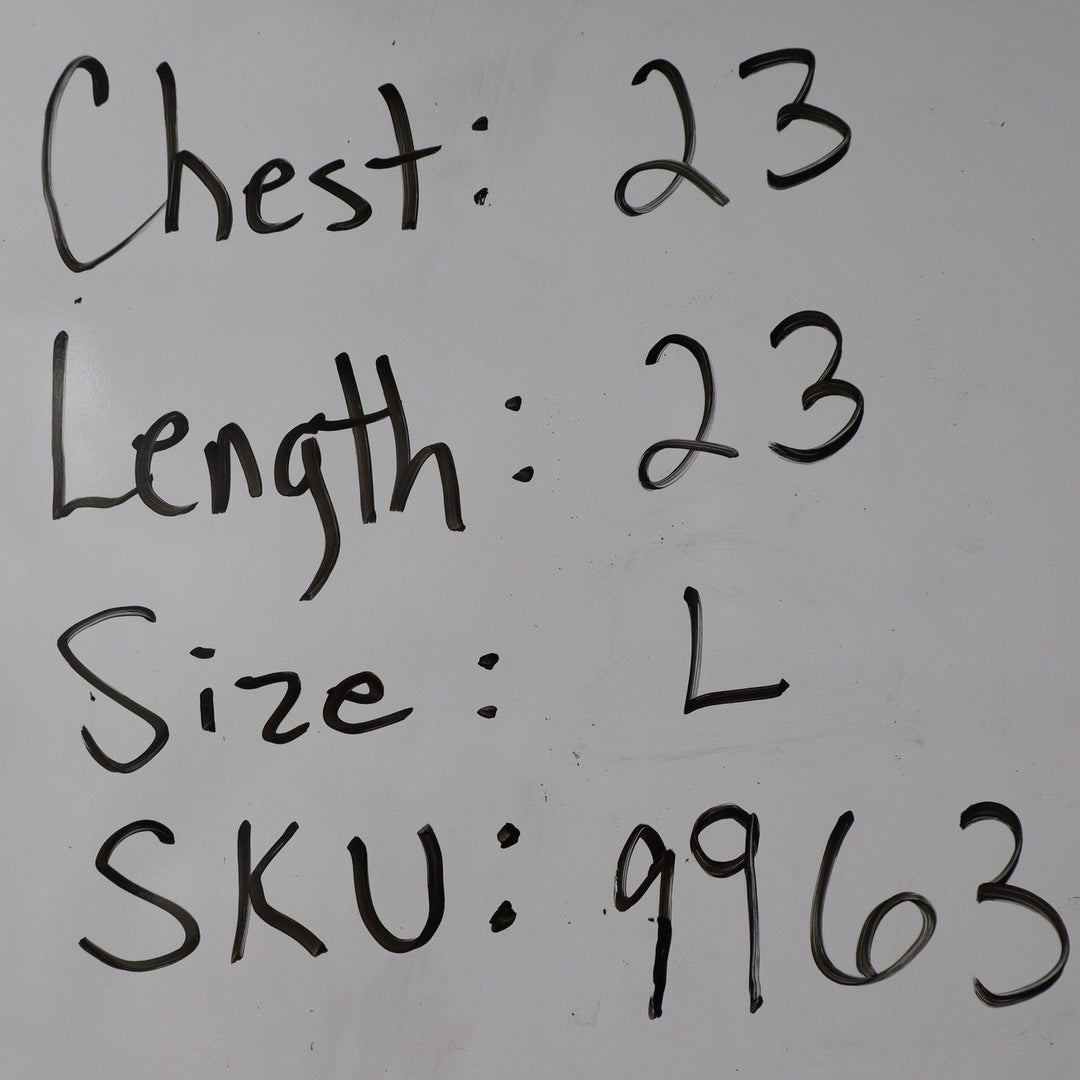 Chest: 23
Length: 23
Size: L
SKU: 9963